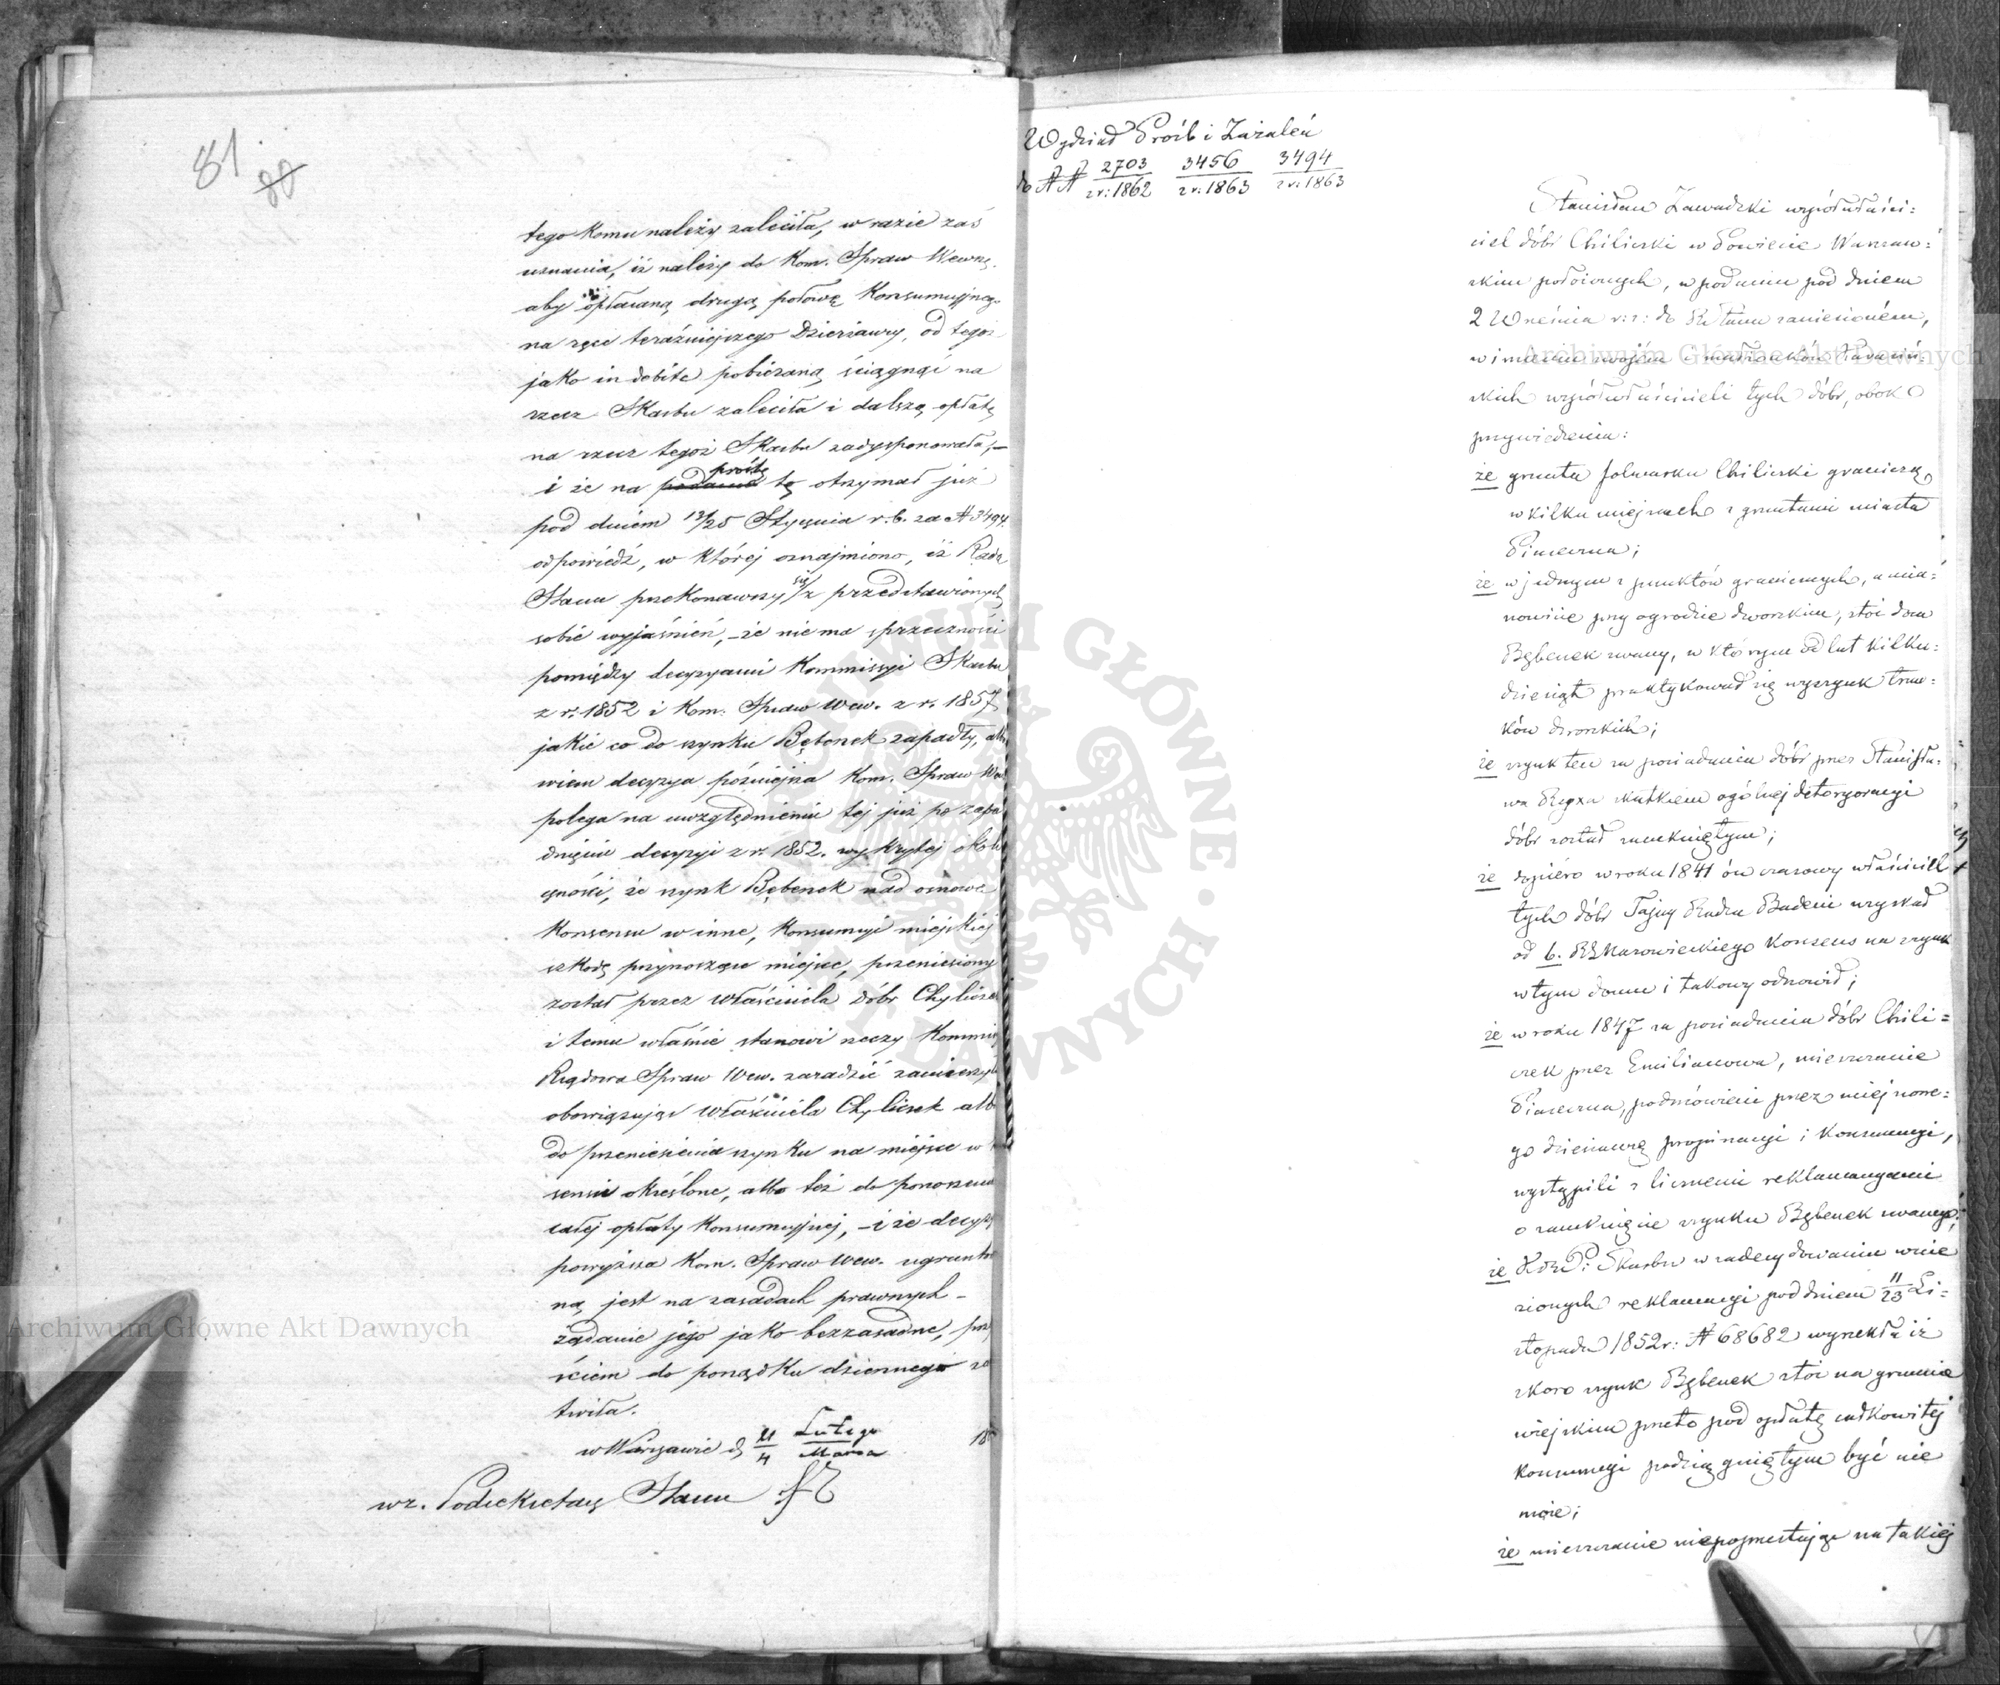 81.
80
tego komu należy zaleciła, w razie zaś
uznania, iż należy do Kom. Spraw Wewnę.
aby opłacaną drugą połowę Konsumcyjnego
na ręce teraźniejszego Dzierżawcy, od tegoż
jako indebite pobieraną ściągnąć na
rzecz Skarbu zaleciła i dalszą opłatę
na rzecz tegoż Skarbu zadysponowała, —
i że na podanie prośbę tę otrzymał już
pod dniem 13/25 Stycznia r. b. za N 3494.
odpowiedź, w której oznajmiono, iż Rada
Stanu przekonawszy się z przedstawionych
sobie wyjaśnień, – że nie ma sprzeczności
pomiędzy decyzyami Kommissyi Skarbu
z r. 1852 i Kom. Spraw Wew. z r. 1857
jakie co do szynku Bębenek zapadły, albo
wiem decyzya późniejsza Kom. Spraw Wew
polega na uwzględnieniu tej już po zapa
dnięciu decyzyi z r. 1852. wykrytej okoli
czności, że szynk Bębenek nad osnowę
Konsensu w inne, Konsumcyi miejskiej
szkodę przynoszące miejsce, przeniesiony
został przez właściciela dóbr Chylicze
i temu właśnie stanowi rzeczy Kommis
Rządowa Spraw Wew. zaradzić zamierzyła
obowiązując Właściciela Chyliczek albo
do przeniesienia szynku na miejsce w
sensie określone, albo też do ponoszenia
całej opłaty Konsumcyjnej, – i że decyzya
powyższa Kom. Spraw Wew. ugrunto
ną jest na zasadach prawnych –
żądanie jego jako bezzasadne, przej
ściem do porządku dziennego za
twiła.
w Warszawie d. Lutego Marca 18
wz. Podsekretarz Stanu
Wydział Próśb i Zażaleń
do NN 2703 z r: 1862 3456 z r: 1863 3494 z r: 1863
Stanisław Zawadzki współwłaści:
ciel dóbr Chiliczki w Powiecie Warszaw:
skim położonych, w podaniu pod dniem
2 Września r: z: do R. Stanu zaniesioném,
w imieniu swojém i małżonków
skich współwłaścicieli tych dóbr, obok
przywiedzenia:
że grunta folwarku Chiliczki graniczą
w kilku miejscach z gruntami miasta
Piaseczna;
że w jednym z punktów granicznych, a mia:
nowicie przy ogrodzie dworskim, stoi dom
Bębenek zwany, w którym od lat kilku:
dziesiąt praktykował się wyszynk trun:
ków dworskich;
że szynk ten za posiadania dóbr przez Stanisła:
wa skutkiem ogólnej deterioracyi
dóbr został zamkniętym;
że dopiéro w roku 1841 ów czasowy właściciel
tych dóbr Tajny Radca Badeni uzyskał
od b. RG Mazowieckiego Konsens na szynk
w tym domu i takowy odnowił;
że w roku 1847 za posiadania dóbr Chili=
czek przez Emilianowa, mieszczanie
Piaseczna, podmówieni przez miejscowe:
go dzierżawcę propinacyi i Konsumcyi,
wystąpili z licznemi reklamacyami
o zamknięcie szynku Bębenek zwanego;
że K. Rz. P. i Skarbu w zadecydowaniu wnie
sionych reklamacyi pod dniem 11/23 Li:
stopada 1852 r: N 68682 wyrzekła iż
skoro szynk Bębenek stoi na gruncie
wiejskim przeto pod opłatę całkowitej
konsumcyi podciągniętym być nie
może;
że mieszczanie nie poprzestając na takiej
Archiwum Główne Akt Dawnych
Archiwum Główne Akt Dawnych
ARCHIWUM GŁÓWNE · AKT DAWNYCH ·